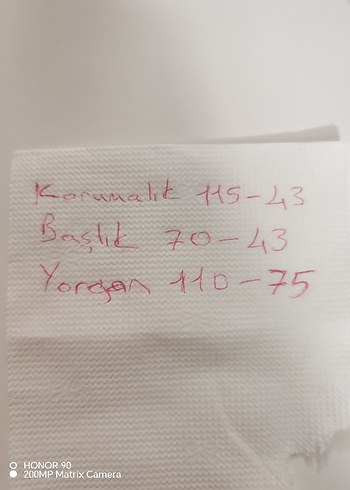 Korumalık 115-43
Başlık 70-43
Yorgan 110-75
HONOR 90
200MP Matrix Camera